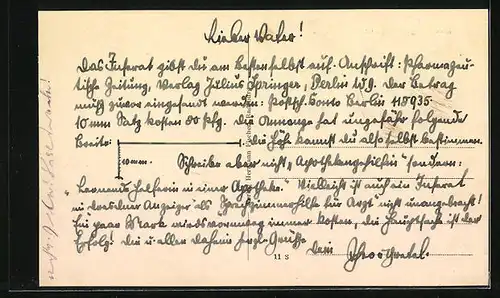 Lieber Vater!
Das Inserat gibst du am besten selbst auf. Anschrift: Pharmazeu-
tische Zeitung, Verlag Julius Springer, Berlin W9. Der Betrag
muß zuvor eingesandt werden: Postsch. Konto Berlin 118935.
10 mm Satz kosten 80 Pfg. Die Annonce hat ungefähr folgende
Breite: Die Höhe kannst du also selbst bestimmen.
mm. Schreibe aber nicht „Apothekengehilfin" sondern:
Lernende Helferin in einer Apotheke." Vielleicht ist auch ein Inserat
im Dresdner Anzeiger als Sprechzimmerhilfe für Arzt nicht unangebracht!
Ein paar Mark wird's vornweg immer kosten, die Hauptsache ist der
Erfolg! Dir u. allen daheim herzl. Grüße
Dein
11 S